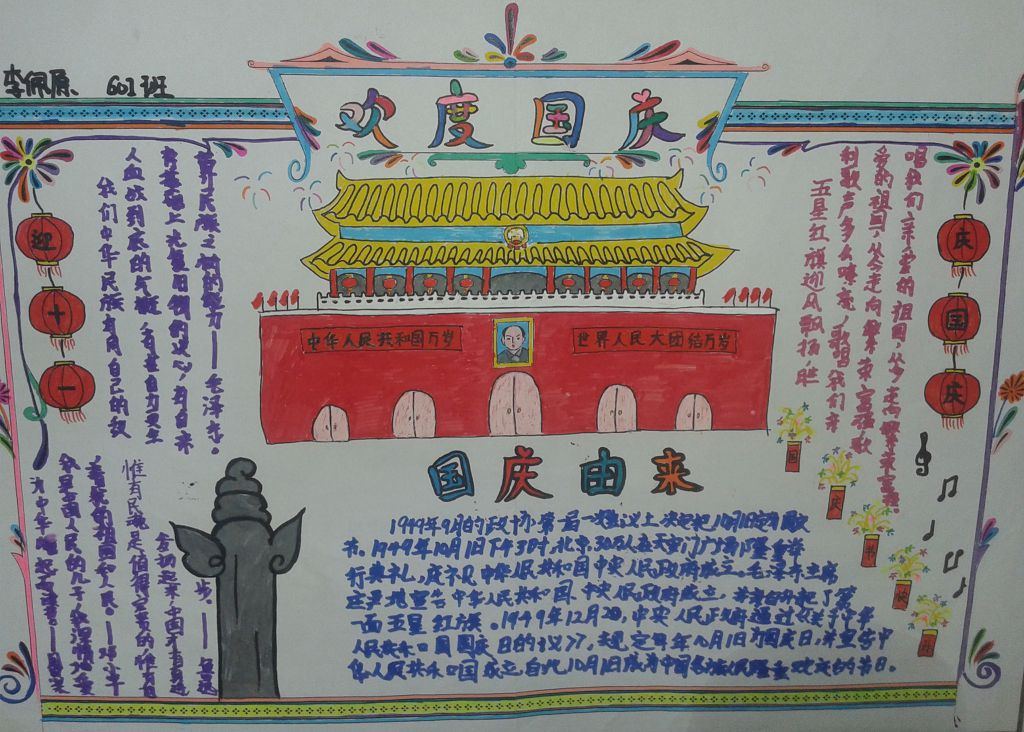 李佩原 601班
欢度国庆
迎十一
界民族之林的能力——毛泽东。
我们中华民族有同自己的敌
人血战到底的气概，有在自力更生
的基础上光复旧物的决心，有自立
唱我们亲爱的祖国，从今走向繁荣富强。
爱的祖国，从今走向繁荣富强歌
利歌声多么嘹亮，歌唱我们亲
五星红旗迎风飘扬，胜
庆国庆
中华人民共和国万岁
世界人民大团结万岁
国庆快
国庆由来
1949年9月的政协第一届一次会议上决定把10月1日定为国庆
节。1949年10月1日下午3时，北京30万人在天安门广场隆重举
行典礼，庆祝中华人民共和国中央人民政府成立。毛泽东主席
庄严地宣告中华人民共和国、中央人民政府成立，并亲自升起了第
一面五星红旗。1949年12月2日，中央人民政府通过《关于中华
人民共和国国庆日的决议》，规定每年10月1日为国庆日，并宣告中
华人民共和国成立，自此10月1日成为中国各族人民隆重欢庆的节日。
惟有民魂是值得宝贵的，惟有他
发扬起来，中国才有真进
步。——
我是中国人民的儿子，我深情地爱
着我的祖国和人民。——邓小平
为中华崛起而读书——周恩来